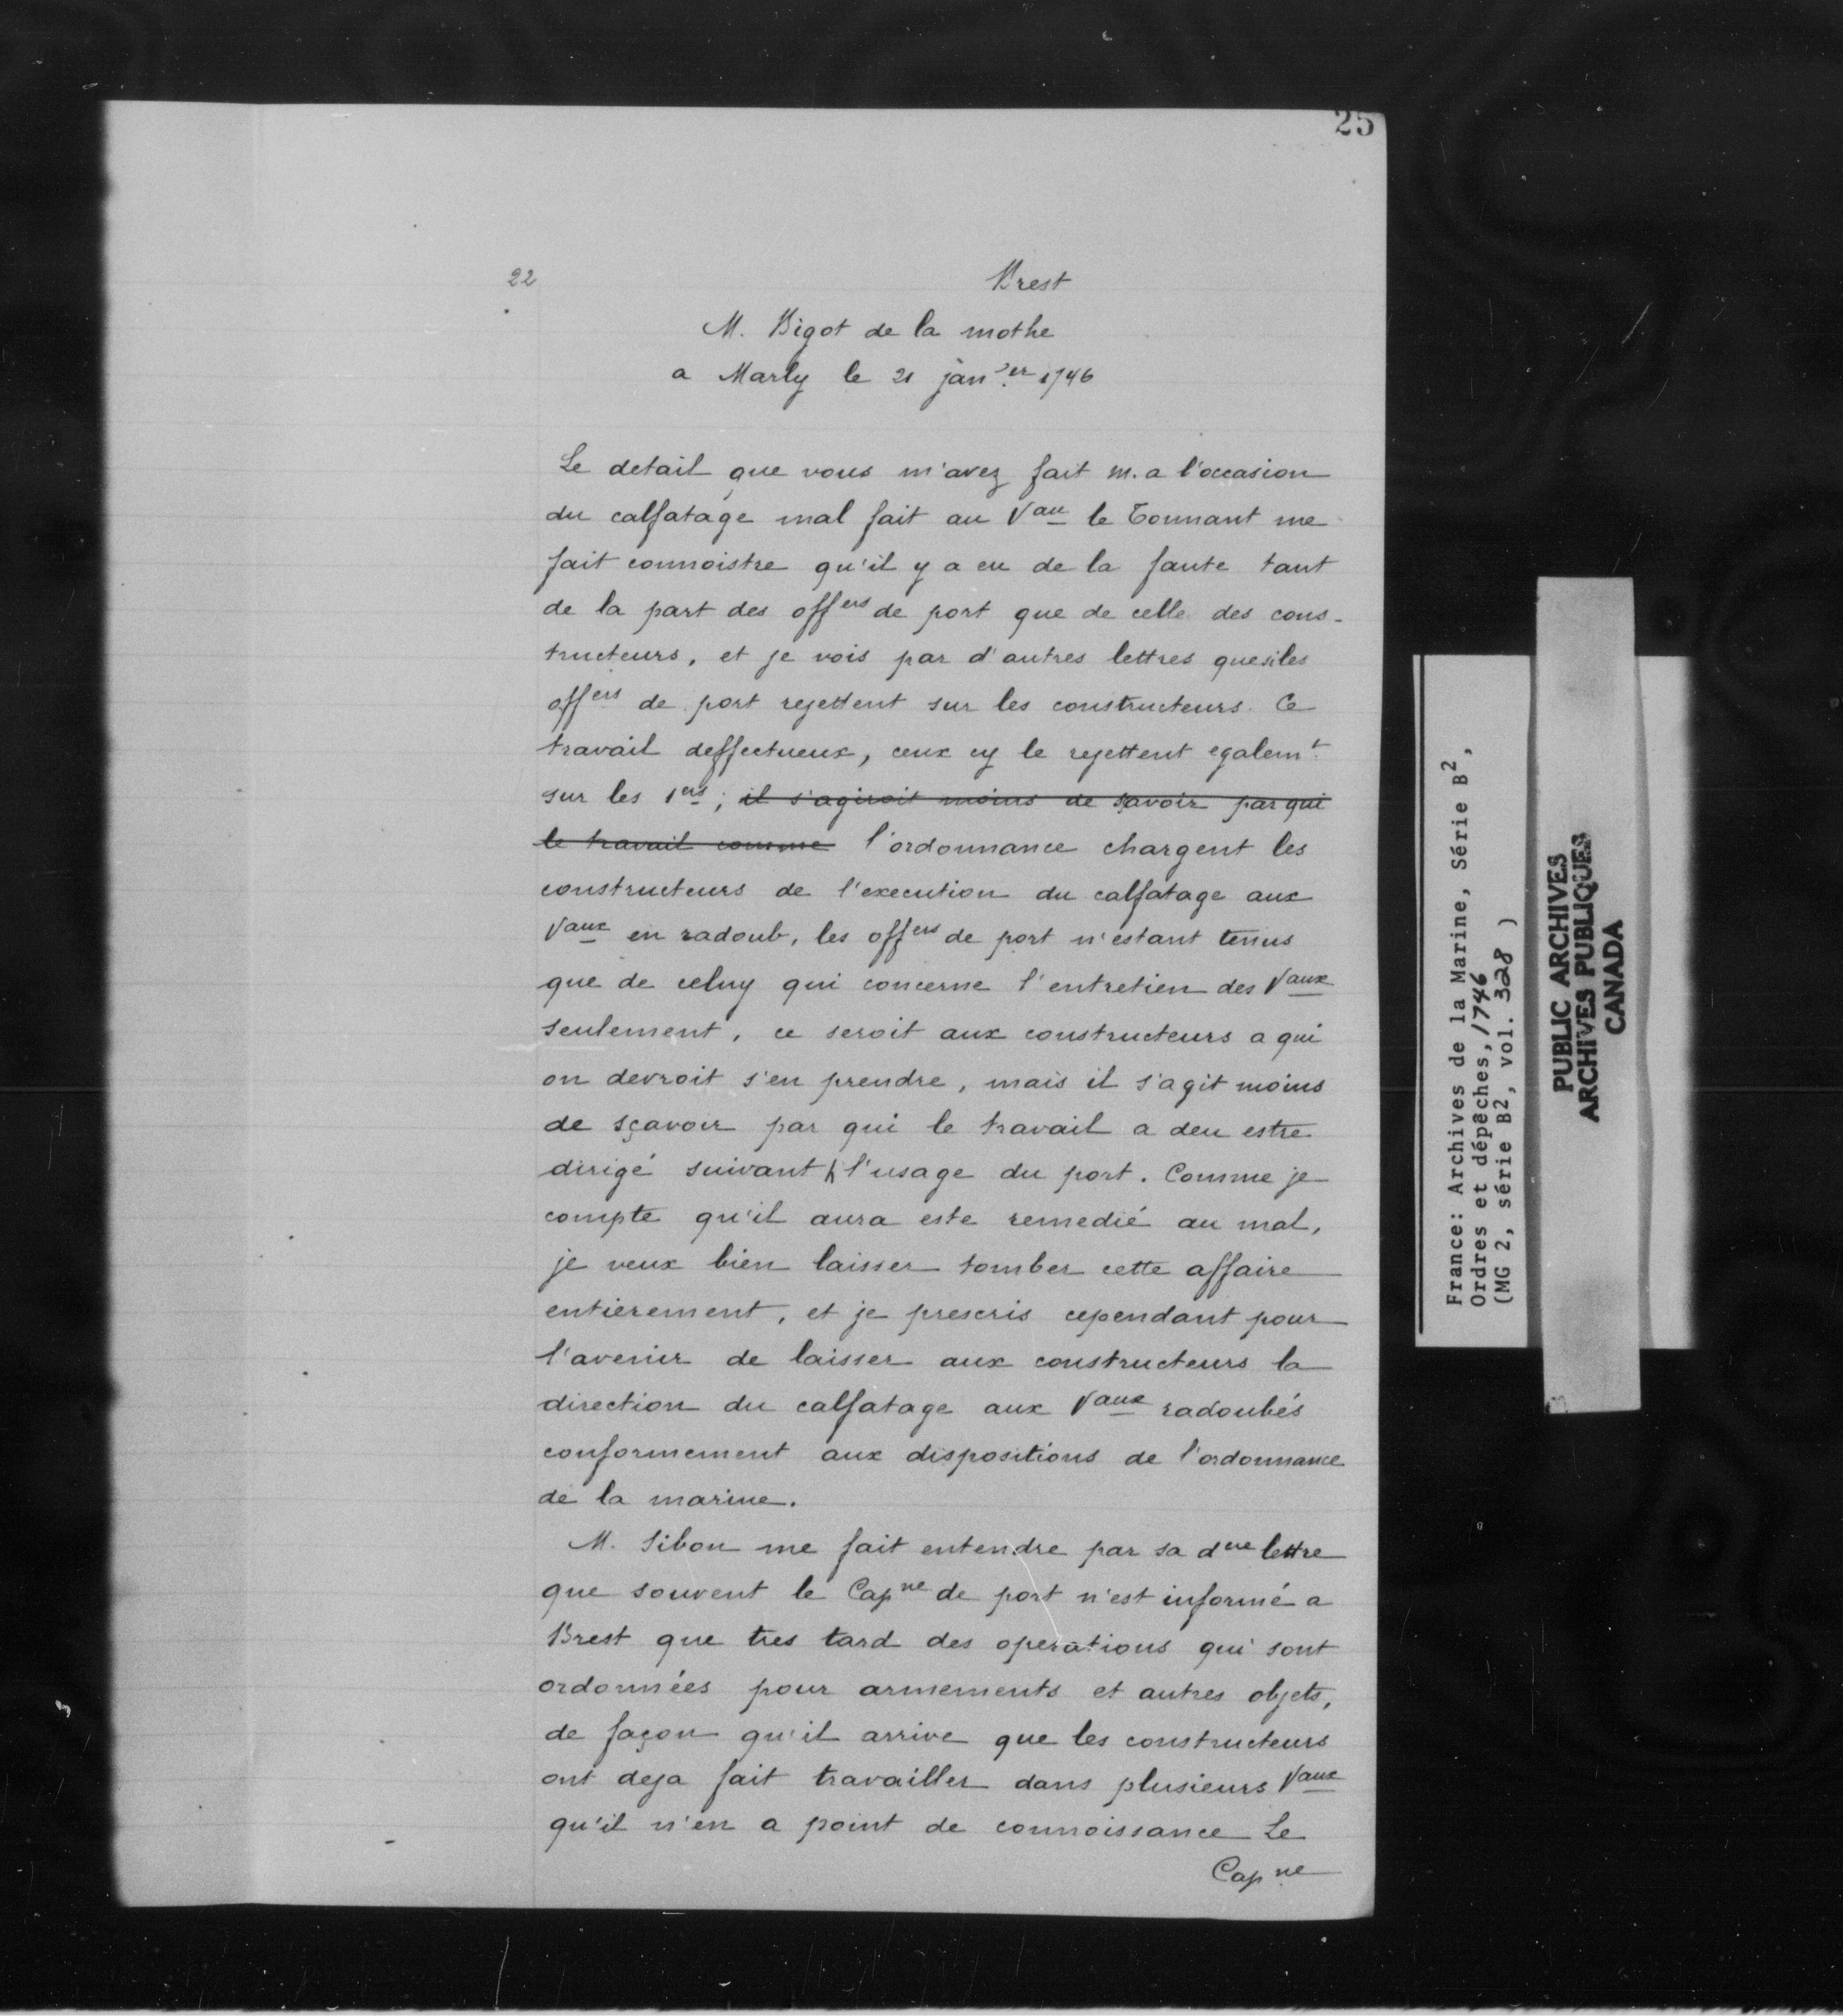 25
22
Brest
M. Bigot de la mothe
a Marly le 21 janver 1746
Le detail que vous m'avez fait m. a l'occasion
du calfatage mal fait au Vau le Tonnant me
fait connoistre qu'il y a eu de la faute tant
de la part des offers de port que de celle des cons-
tructeurs, et je vois par d'autres lettres que si les
offers de port rejettent sur les constructeurs. Ce
travail deffectueux, ceux cy le rejettent egalemt
sur les 1ers; il s'agiroit moins de sçavoir par qui
le travail comme l'ordonnance chargent les
constructeurs de l'execution du calfatage aux
Vaux en radoub, les offers de port n'estant tenus
que de celuy qui concerne l'entretien des Vaux
seulement, ce seroit aux constructeurs a qui
on devroit s'en prendre, mais il s'agit moins
de sçavoir par qui le travail a deu estre
dirigé suivant l'usage du port. Comme je
compte qu'il aura este remedié au mal,
je veux bien laisser tomber cette affaire
entierement, et je prescris cependant pour
l'avenir de laisser aux constructeurs la
direction du calfatage aux Vaux radoubés
conformement aux dispositions de l'ordonnance
de la marine.
M. Sibon me fait entendre par sa dre lettre
que souvent le Capne de port n'est informé a
Brest que tres tard des operations qui sont
ordonnées pour armements et autres objets,
de façon qu'il arrive que les constructeurs
ont deja fait travailler dans plusieurs Vaux
qu'il n'en a point de connoissance Le
Capne
France: Archives de la Marine, Série B2,
Ordres et dépêches, 1746
(MG 2, série B2, vol. 328 )
PUBLIC ARCHIVES
ARCHIVES PUBLIQUES
CANADA